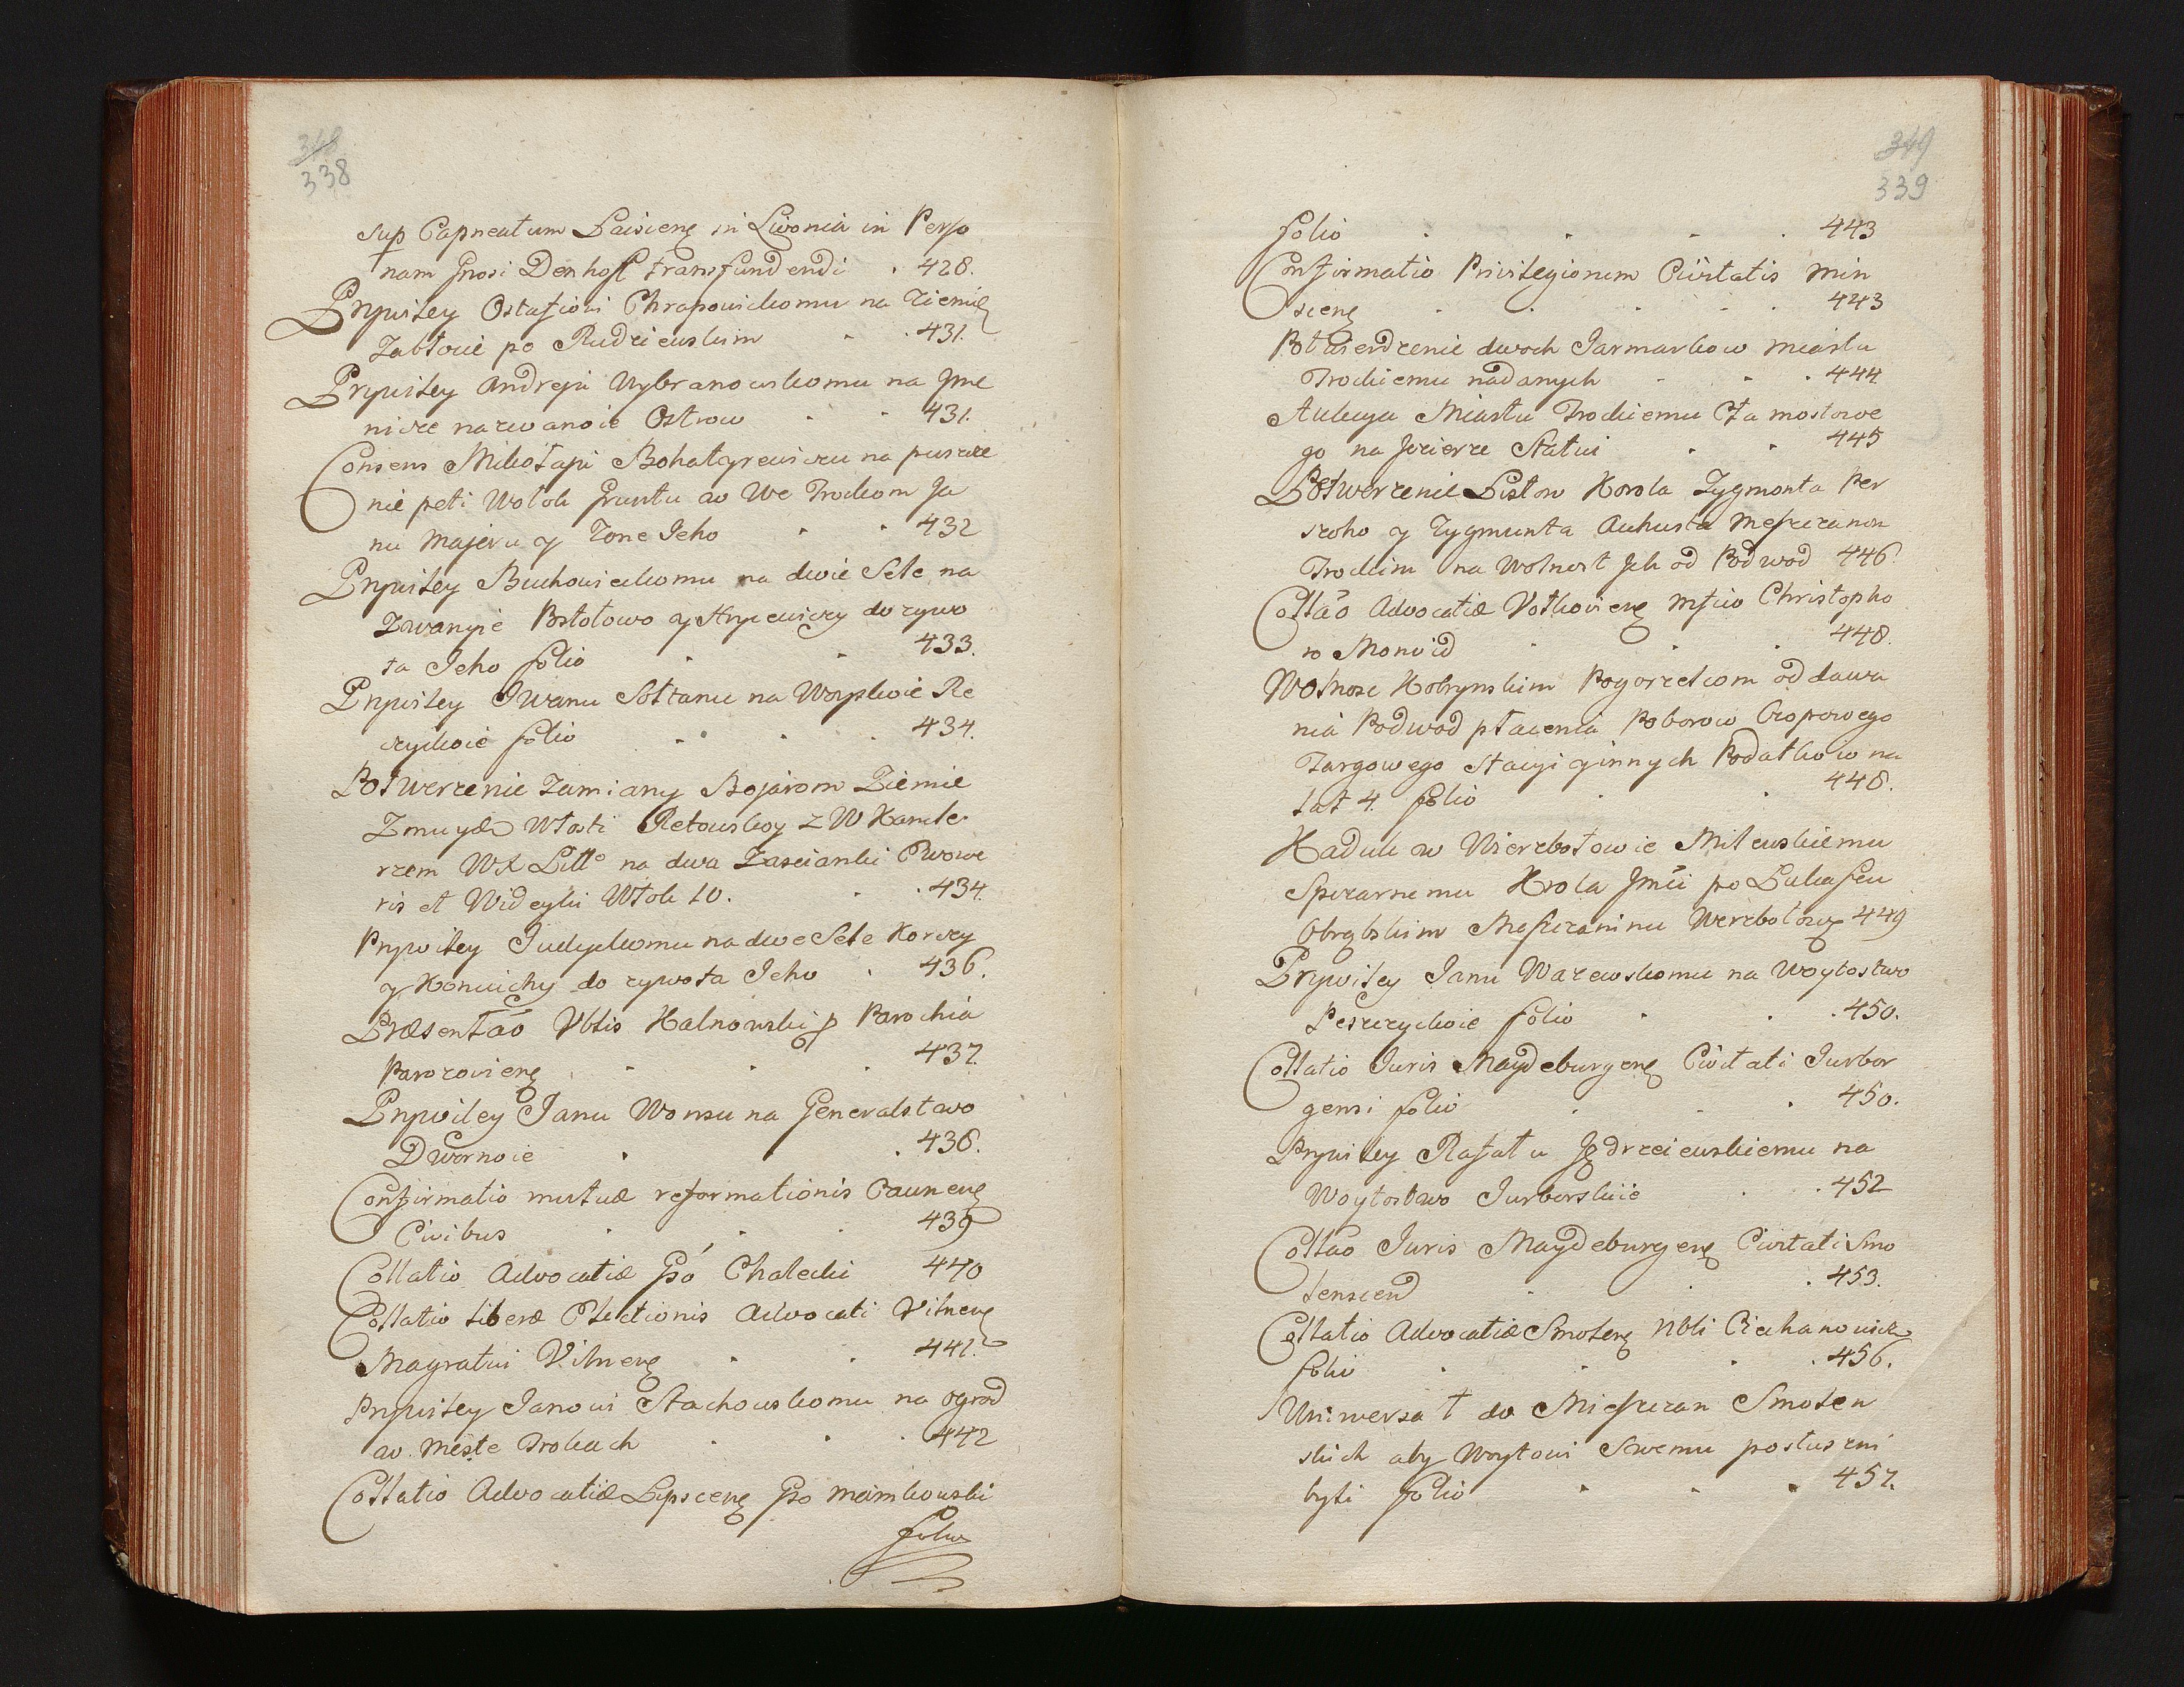 348
338
sup Capneatum Laisieng in Livonia in Perso
nam Gnosi Denhoff transfundendi . 428.
Prywiley Ostafiowi Chrapowickomu na Ziemię
Zabłocie po Rudzieuskim . . 431.
Prywiley Andreju Wybranowskomu na Jme
nicze nazwanoie Ostrow . . 431.
Consens Mikołaju Bohatyrewiczu na puszcze
nie peti Wołok Gruntu w We Trockom Ja
nu Majeru y Zone Jeho . . 432
Prywiley Buchowieckomu na dwie Sele na
Zwanyie Bołotowo y Hrycewiczy do zywo
ta Jeho folio . . 433.
Prywiley Iwanu Sołtanu na Woyskoie Re
czyckoie folio . . . 434.
Potwerzenie Zamiany Bojarom Ziemie
Zmuyd Włosti Retowskoy z W Kancle
rzem WX Litto na dwa Zascianki Powowe
ris et Wideyki Włok 10. . . 434.
Prywiley Judyckomu na dwe Sele Korczy
y Koniuchy do zywota Jeho . 436.
Præsentao Vblis Halnowski p Parochia
Parozovieng . . . 437.
Prywiley Janu Wonsu na Generalstwo
Dwornoie . . 438.
Confirmatio mutuæ reformationis Cauneng
Civibus . . . 439
Collatio Advocatiæ Gso Chalecki 440
Collatio liberæ Electionis Advocati Vilneng
Magratui Vilneng . . 441.
Prywiley Janowi Stachowskomu na ogrod
w Meste Trokach . . . 442
Collatio Advocatiæ Lipsceng Gso Meimkowski
folio
349
339
folio . . . . 443
Confirmatio Privilegiorum Civitatis Min
scieng . . . . . 443
Potwierdzenie dwoch Jarmarkow Miastu
Trockiemu nadanych . . . 444
Aukcya Miastu Trockiemu Za mostowe
go na Jezierze Statui . . 445
Potwerzenie Listow Korola Zygmonta Per
szoho y Zygmunta Auhusta Meszczanom
Trockim na Wolnost Jch od Podwod 446.
Collao Advocatiæ Volkovieng Mfico Christopho
ro Monwid . . . 448.
Wolnosc Kobrynskim Pogorzelcom od dawa
nia Podwod płacenia Poborow Czopowego
Targowego Stacyi y innych Podatkow na
lat 4 folio . . 448.
Kaduk w Wierzbołowie Milewskiemu
Spizarnemu Krola Jmci po Lukaszu
Obrębskim Meszczaninu Werzbołow 449
Prywiley Janu Warzewskomu na Woytostwo
Peszczyckoie folio . . . 450.
Collatio Juris Maydeburgeng Civitati Jurbor
gensi folio . . . 450.
Prywiley Rafału Jędrzeiewskiemu na
Woytostwo Jurborskiie . . 452
Collao Juris Maydeburgeng Civitati Smo
lenscend . . . 453.
Collatio Advocatiæ Smoleng Nbli Ciechanowicz
folio . . . . 456.
Uniwersał do Mieszczan Smolen
skich aby Woytowi Swemu posłuszni
byli folio . . . 457.